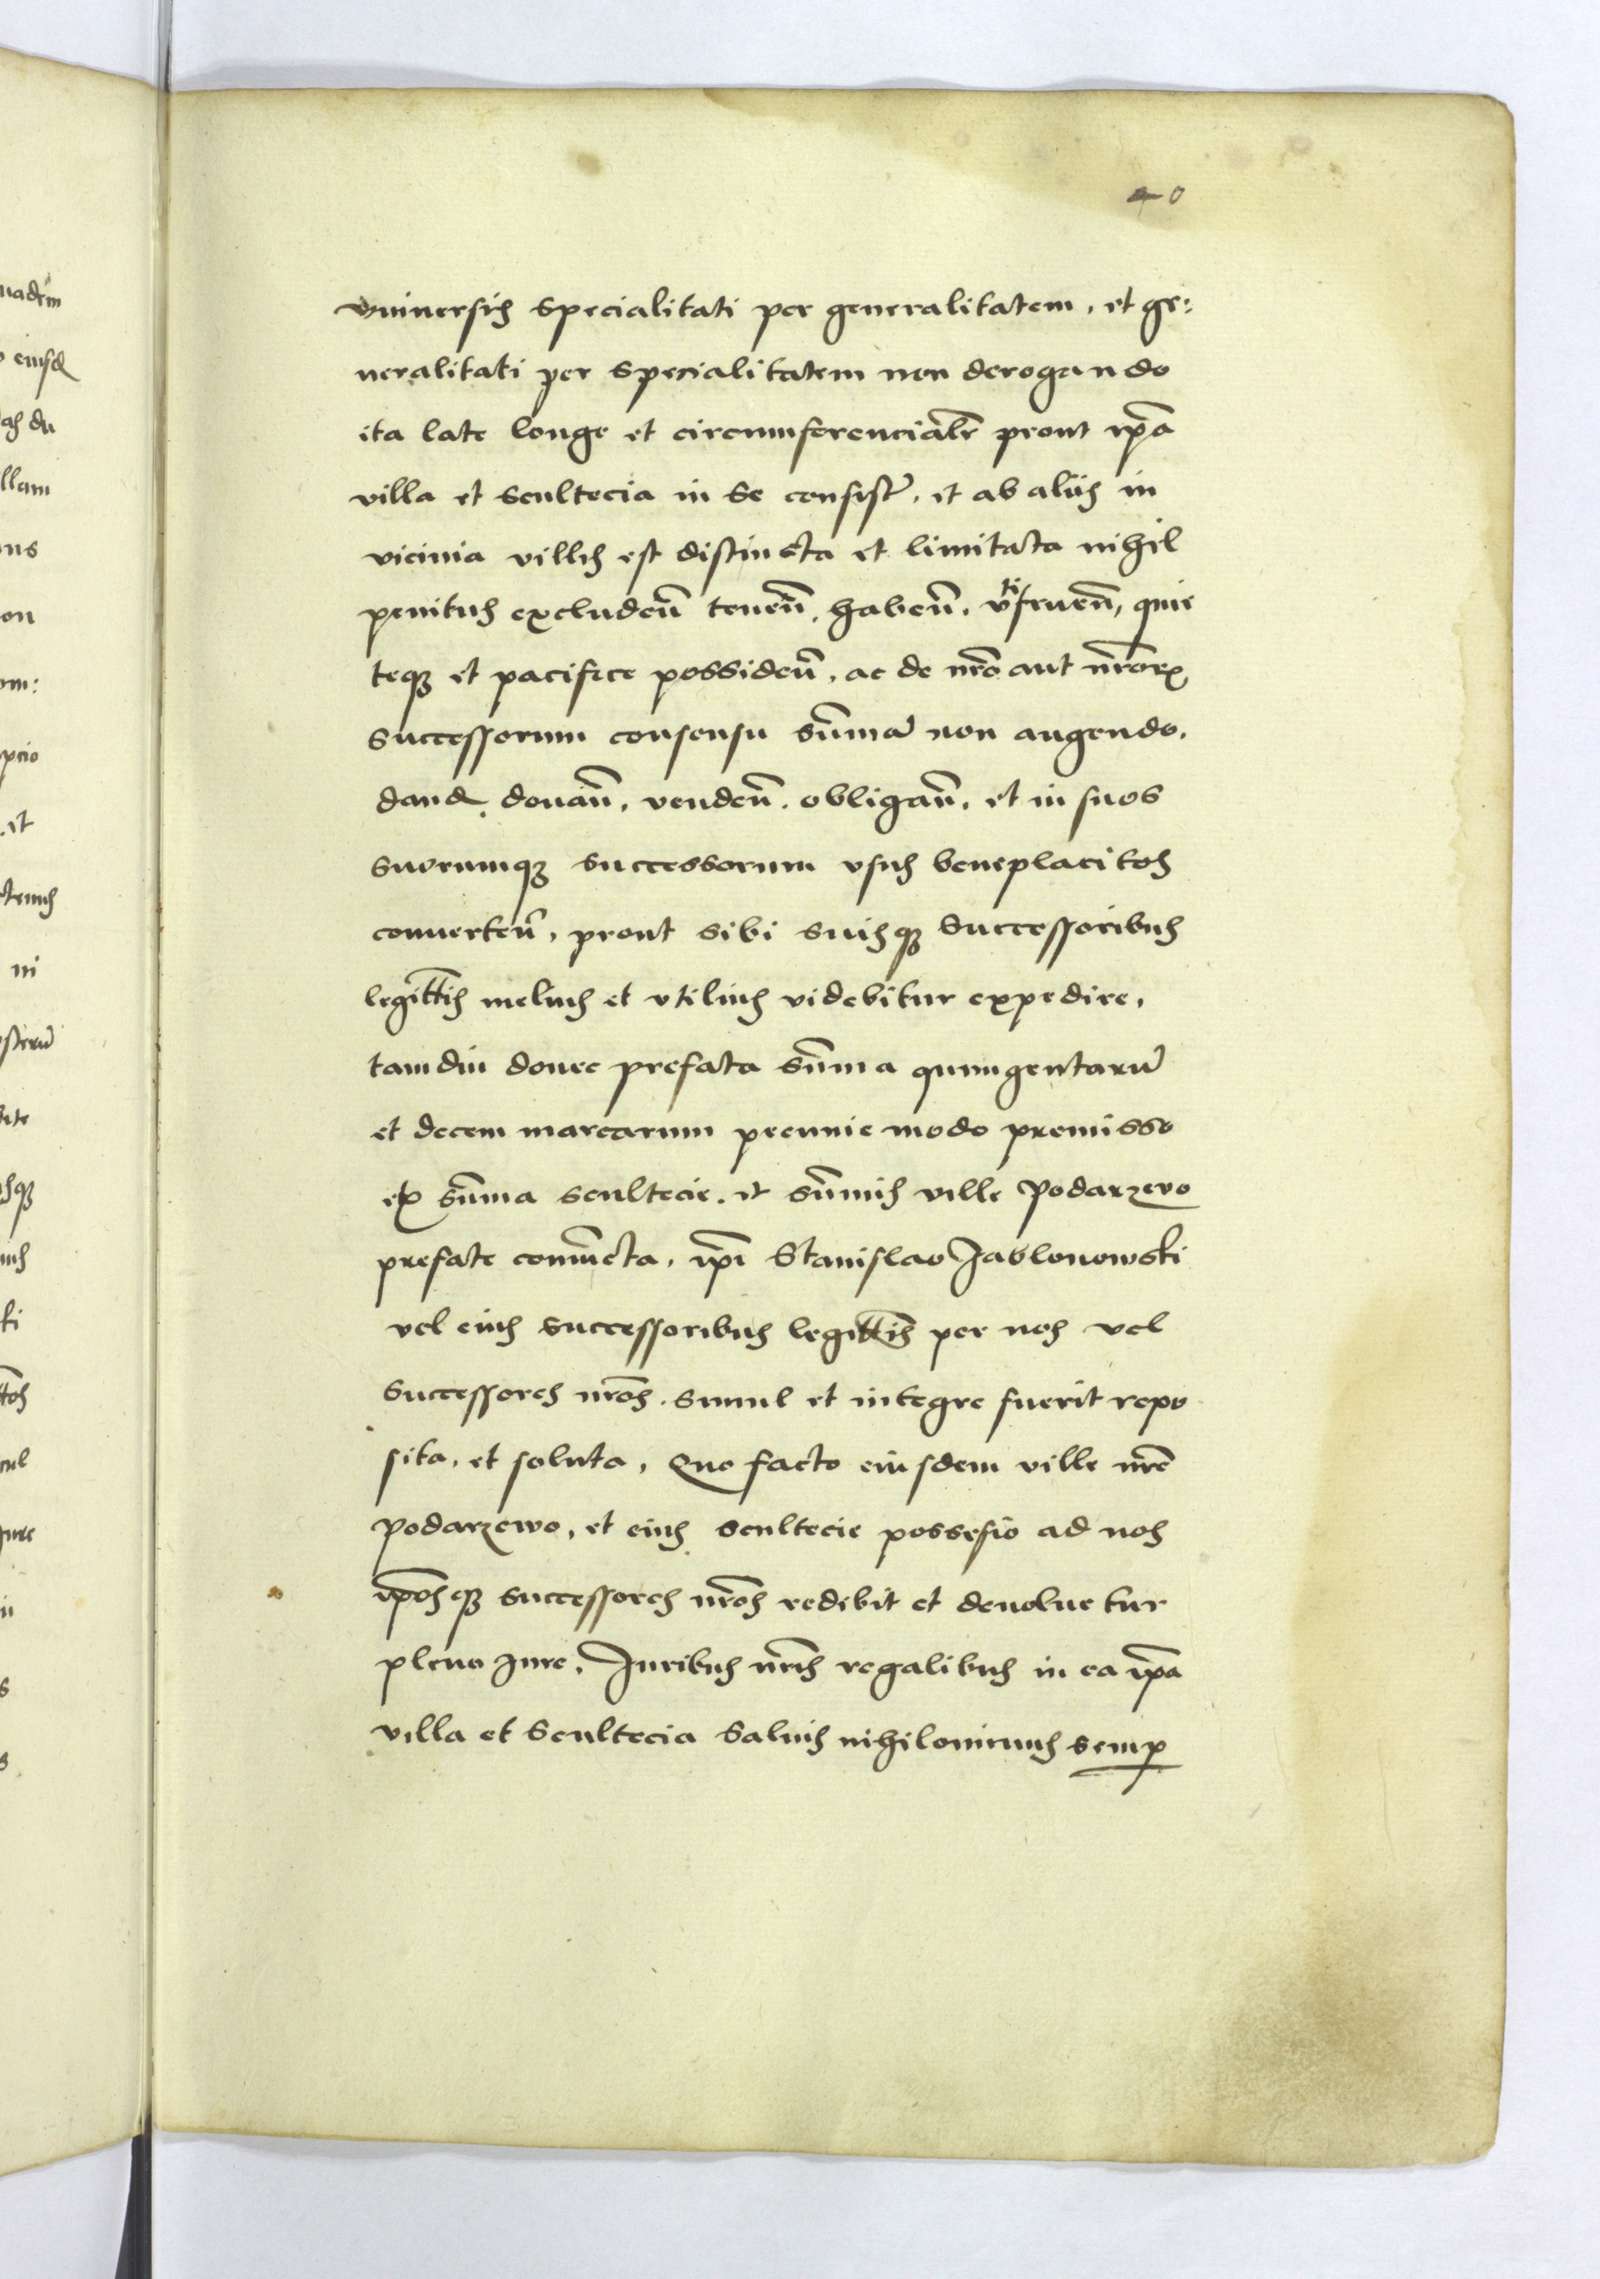 40
vniuersis specialitati per generalitatem, et ge:
neralitati per specialitatem non derogando
ita late longe et circumferencialr̃ prout ip̃a
villa et scultecia in se consist̃, et ab aliis in
vicinia villis est distincta et limitata nihil
penitus excludeñ teneñ, habeñ, vtifrueñ, quie
teqꝫ et pacifice possideñ, ac de nr̃o aut nr̃orꝝ
successorum consensu sũmã non augendo,
dand, donañ, vendeñ, obligañ, et in suos
suorumqꝫ successorum vsus beneplacitos
conuerteñ, prout sibi suisqꝫ successoribus
legittĩs melius et vtilius videbitur expedire,
tamdiu donec prefata sũma quingentarũ
et decem marcarum pecunie modo premisso
ex sũma scultecie, et sũmis ville Podarzewo
prefate coniũcta, ip̃i Stanislao Jablonowski
vel eius successoribus legittĩs per nos vel
successores nr̃os, simul et integre fuerit repo
sita, et soluta, Quo facto eiusdem ville nr̃e
podarzewo, et eius scultecie possesio ad nos
ip̃osqꝫ successores nr̃os redibit et deuoluetur
pleno Jure, Juribus nr̃is regalibus in ea ip̃a
villa et Scultecia Saluis nihilominus semꝑ